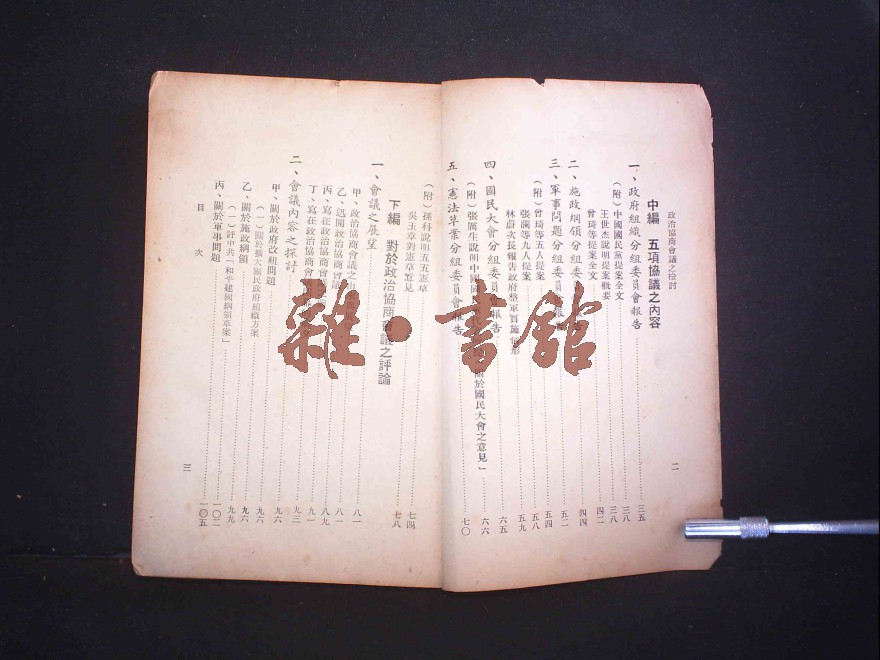 政治協商會議之檢討
二
中編 五項協議之內容
一、政府組織分組委員會報告 三五
(附)中國國民黨提案全文 三八
王世杰說明提案概要 三八
曾琦等提案全文 四二
二、施政綱領分組委員會報告 四四
三、軍事問題分組委員 報告 五二
(附)曾琦等五人提案 五四
張瀾等九人提案 五八
林蔚次長報告政府整軍實施 形 五九
四、國民大會分組委員會報告 六五
(附)張厲生說明中國國民 關於國民大會之意見」 六六
五、憲法草案分組委員會報告 七〇
(附)孫科說明五五憲草 七四
吳玉章對憲草意見 七八
下編 對於政治協商會議之評論
一、會議之展望 八一
甲、政治協商會議之
乙、迅開政治協商會議 八一
丙、寫在政治協商會 八九
丁、寫在政治協商會 九一
二、會議內容之探討 九三
甲、關於政府改組問題 九六
(一)關於擴大國民政府組織方案 九六
乙、關於施政綱領 九六
(一)評中共「和平建國綱領草案」 九九
丙、關於軍事問題 一〇二
一〇五
目 次
三
雜·書館